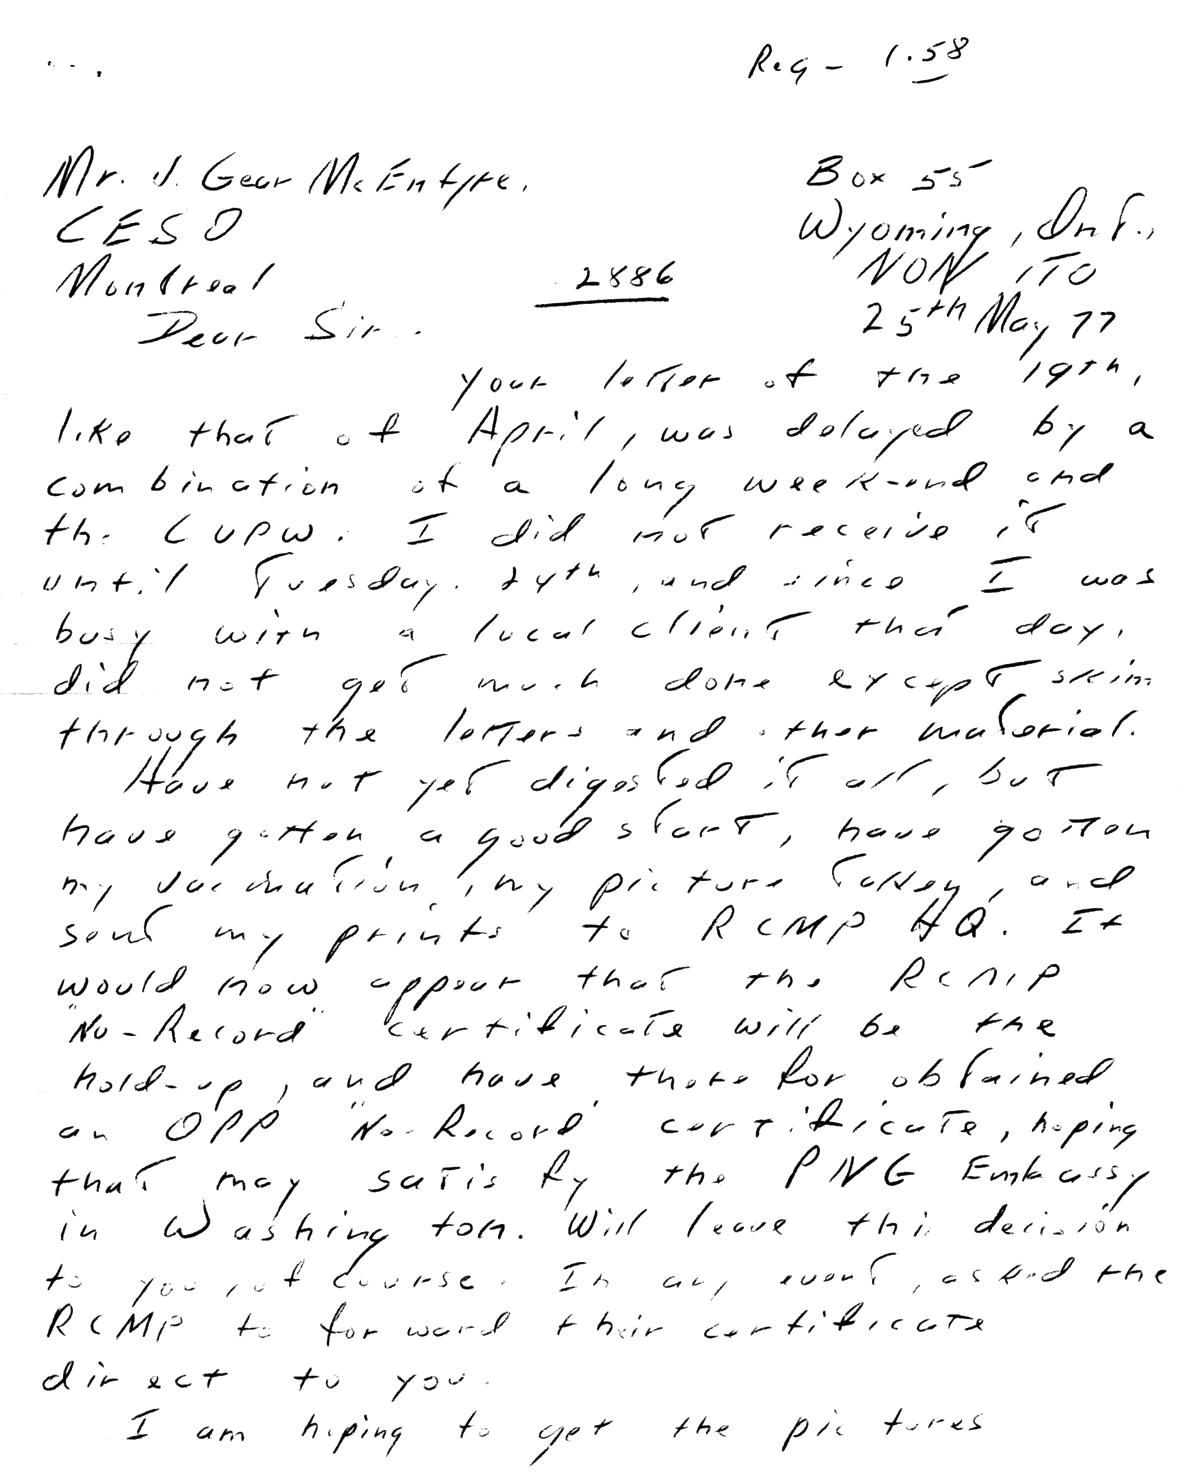 Reg - 1.58
Mr. J. Gear McEntyre.
CESO
Montreal
2886
Box 55
Wyoming, Ont.,
NON ITO
25th May 77
Dear Sir.
Your letter of the 19th,
like that of April, was delayed by a
combination of a long week-end and
the CUPW. I did not receive it
until Tuesday. 24th, and since I was
busy with a local client that day,
did not get much done except skim
through the letters and other material.
Have not yet digested it all, but
have gotten a good start, have gotten
my vaccination, my picture taken, and
sent my prints to RCMP HQ. It
would now appear that the RCMP
"No-Record" certificate will be the
hold-up, and have therefor obtained
an OPP "No-Record" certificate, hoping
that may satisfy the PNG Embassy
in Washington. Will leave this decision
to you, of course. In any event, asked the
RCMP to forward their certificate
direct to you.
I am hoping to get the pictures